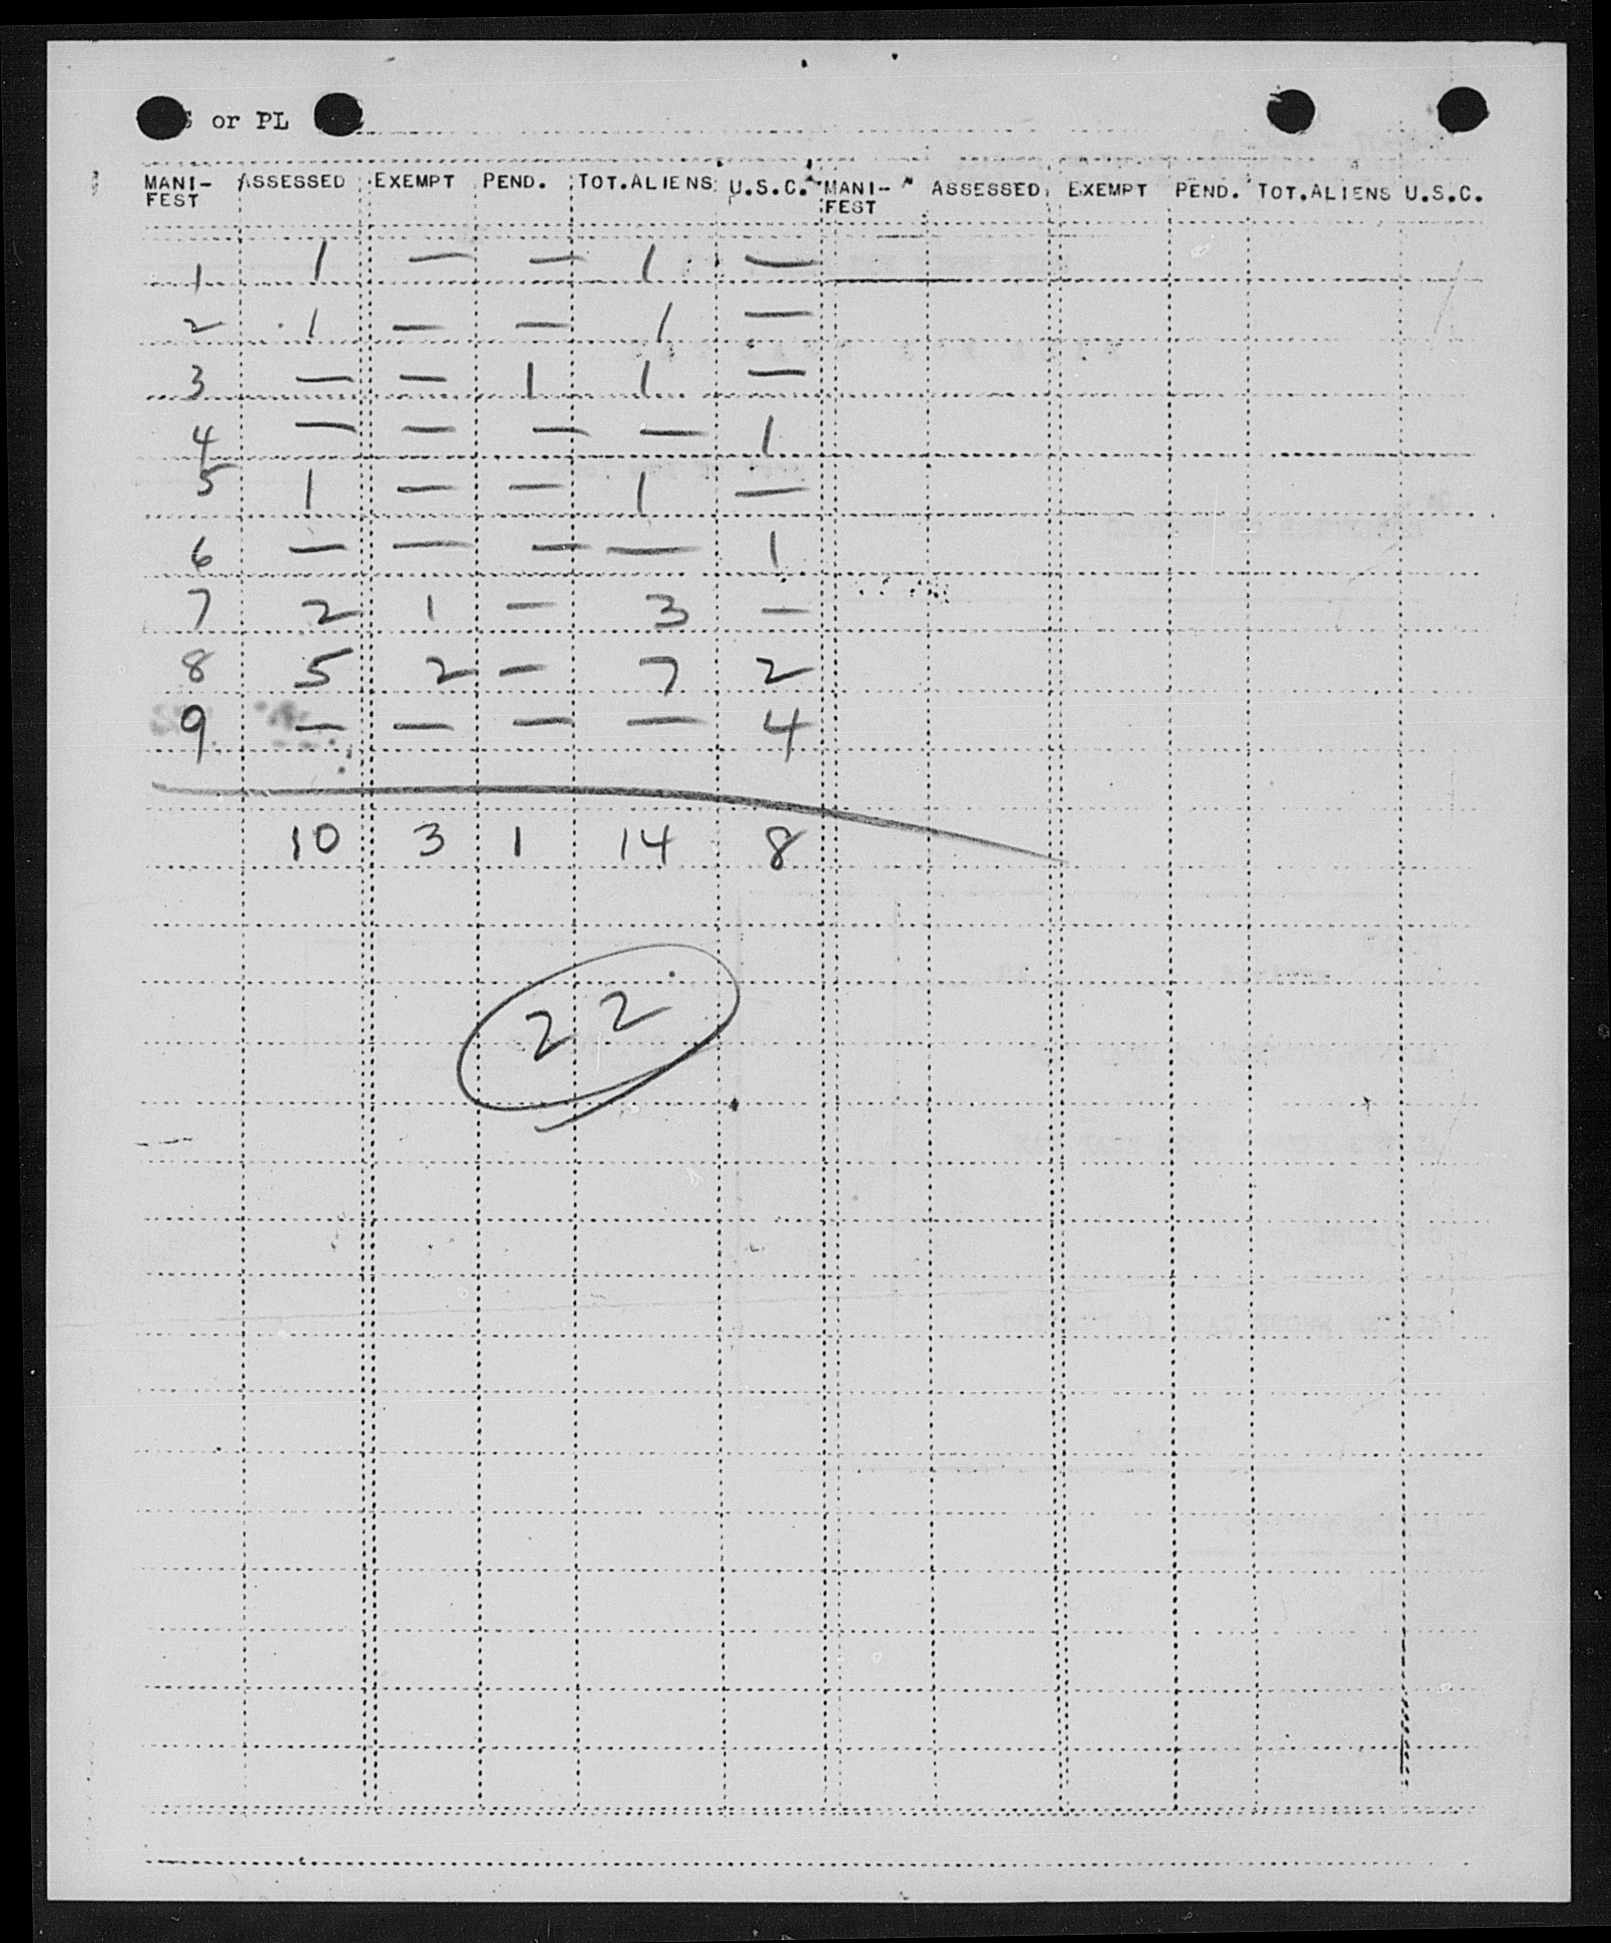 or PL
MANI- ASSESSED EXEMPT PEND. TOT.ALIENS U.S.C. MANI- ASSESSED EXEMPT PEND. TOT.ALIENS U.S.C.
FEST FEST
1 1 — — 1 —
2 1 — — 1 —
3 — — 1 1 —
4 — — — — 1
5 1 — — 1 —
6 — — — — 1
7 2 1 — 3 —
8 5 2 — 7 2
9 — — — — 4
10 3 1 14 8
22